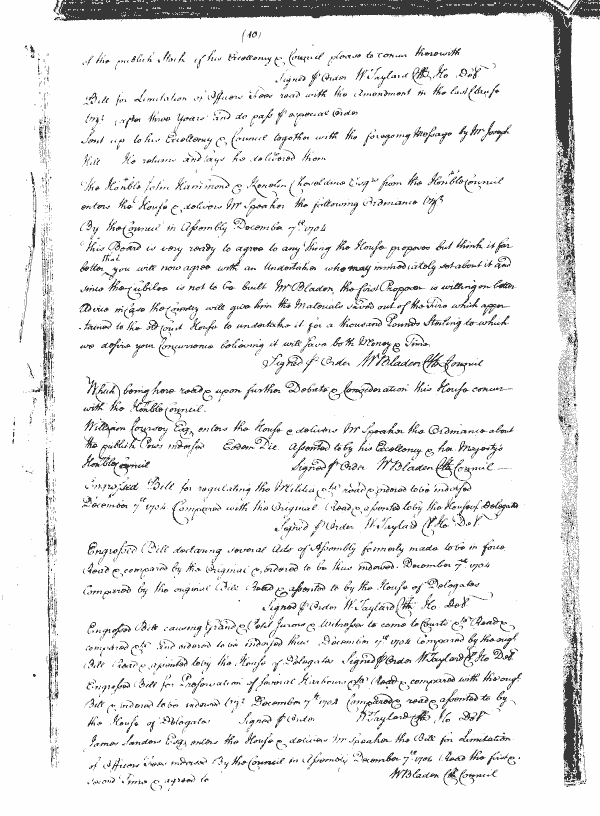 (10)
of the publick Stock if his Excellency & Council please to concur therewith
Signed p Order W Taylard Clk Ho Del
Bill for Limitation of Officers Fees read with the Amendment in the last Clause
after three Years and do pass p especial Order
Sent up to his Excellency & Council together with the foregoing Message by Mr Joseph
Hill He returns and says he delivered them
The Honble John Hammond & Kenelm Cheseldine Esqrs from the Honble Council
enters the House & delivers Mr Speaker the following Ordinance
By the Council in Assembly December 7th 1704
This Board is very ready to agree to any thing the House proposes but think it far
better that you will now agree with an Undertaker who may immediately set about it and
since the is not to be built Mr Bladen the first Proposer is willing on better
Advice in case the Country will give him the Materials saved out of the Fire which apper
tained to the old Court House to undertake it for a thousand Pounds Sterling to which
we desire your Concurrence believing it will save both Money & Time.
Signed p Order W Bladen Clk Council
Which being here read & upon further Debate & Consideration this House concur
with the Honble Council.
William Coursey Esq enters the House & delivers Mr Speaker the Ordinance about
the publick indorsed Eodem Die. Assented to by his Excellency & her Majestys
Honble Council Signed p Order W Bladen Cl Council
Ingrossed Bill for regulating the Militia &c read & ordered to be indorsed
December 7th 1704 Compared with the Original Read & assented to by the House of Delegates
Signed p Order W Taylard Cl Ho Del
Engrossed Bill declaring several Acts of Assembly formerly made to be in force
Read & compared by the Original & ordered to be thus indorsed. December 7th 1704
Compared by the original Bill Read & assented to by the House of Delegates
Signed p Order W Taylard Clk Ho Del
Engrossed Bill causing Grand & Petit Jurors & Witnesses to come to Courts &c Read &
compared &c And ordered to be indorsed thus December 7th 1704 Compared by the origl
Bill Read & assented to by the House of Delegates Signed p Order W Taylard Cl Ho Del
Engrossed Bill for Preservation of several Harbours &c Read & compared with the origl
Bill & ordered to be indorsed December 7th 1704 Compared read & assented to by
the House of Delegates Signed p Order W Taylard Clk Ho Del
James Sanders Esq enters the House & delivers Mr Speaker the Bill for Limitation
of Officers Fees indorsed By the Council in Assembly December 7th 1704 Read the first &
second Time & agreed to W Bladen Clk Council